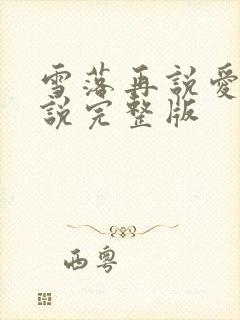 雪落再説愛
説完整版
西粵